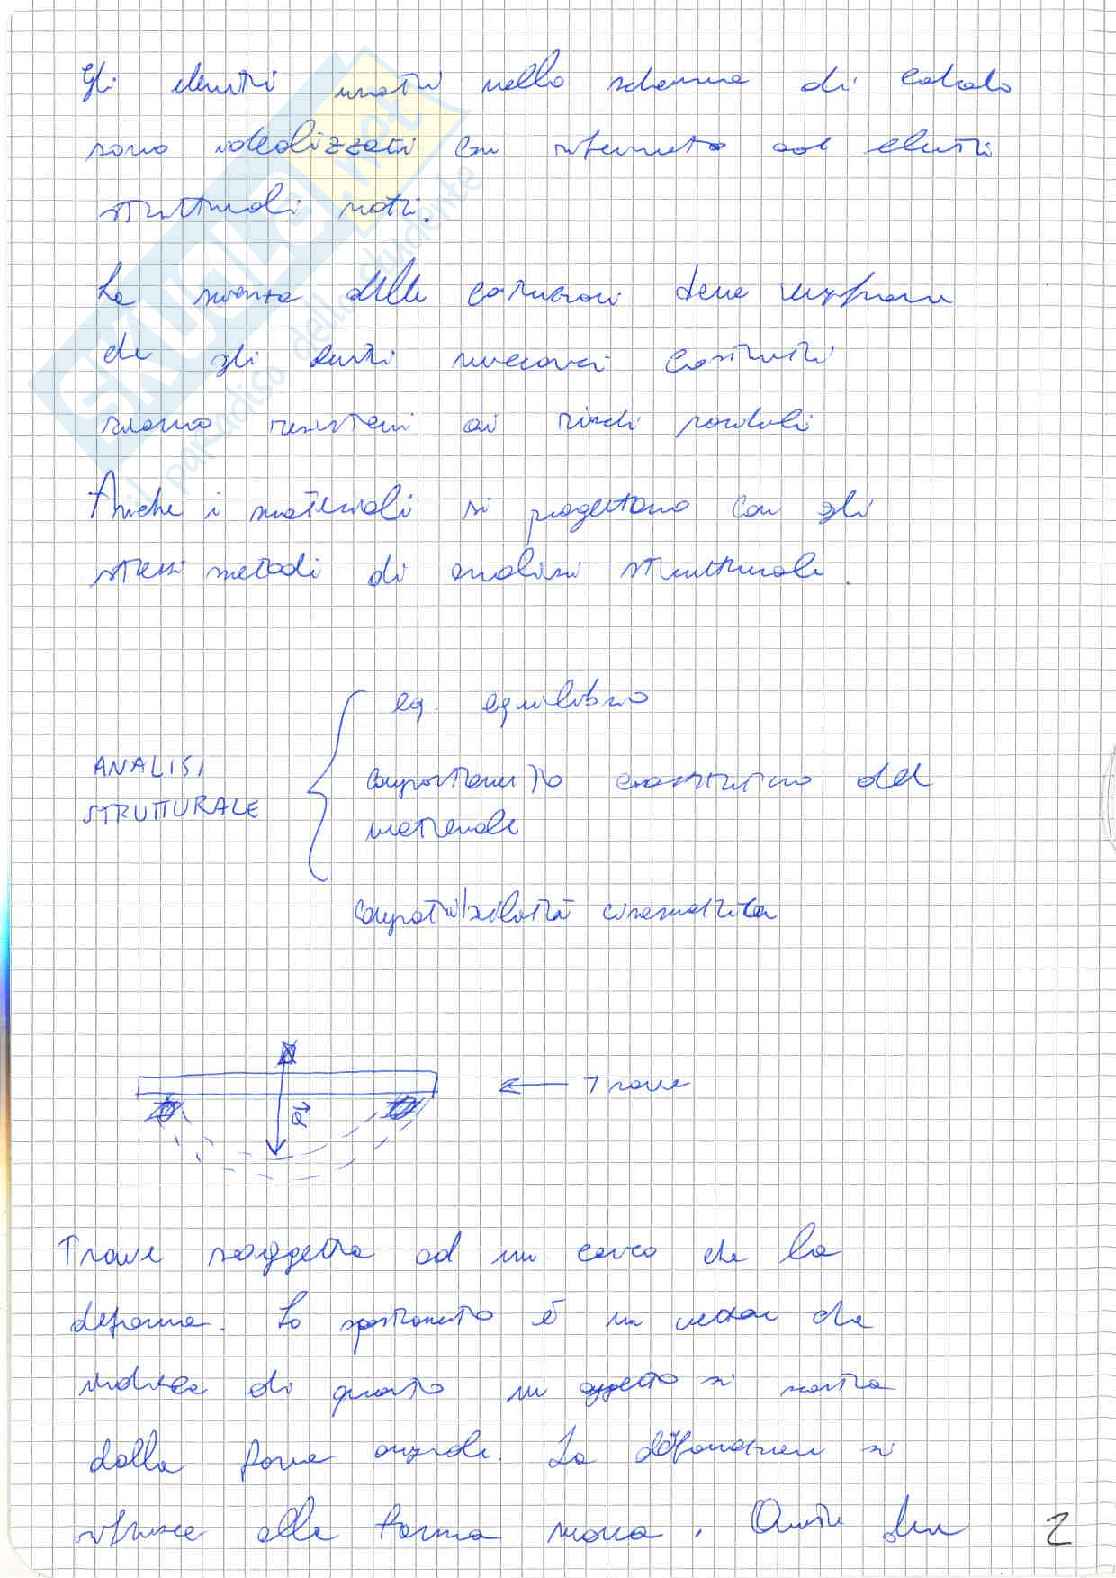 Gli elementi usati nello schema di calcolo
sono idealizzati con riferimento ad elementi
strutturali noti.
La scienza delle costruzioni deve
che gli elementi costruiti
siano resistenti ai
Anche i materiali si progettano con gli
stessi metodi di analisi strutturale.
eq. equilibrio
ANALISI
STRUTTURALE
comportamento costitutivo del
materiale
compatibilità cinematica
Trave
Trave soggetta ad un carico che la
deforma. Lo spostamento è un vettore che
indica di quanto un oggetto si sposta
dalla forma originale. La deformazione si
riferisce alla forma nuova. Queste
2
skuola.net
il paradiso dello studente